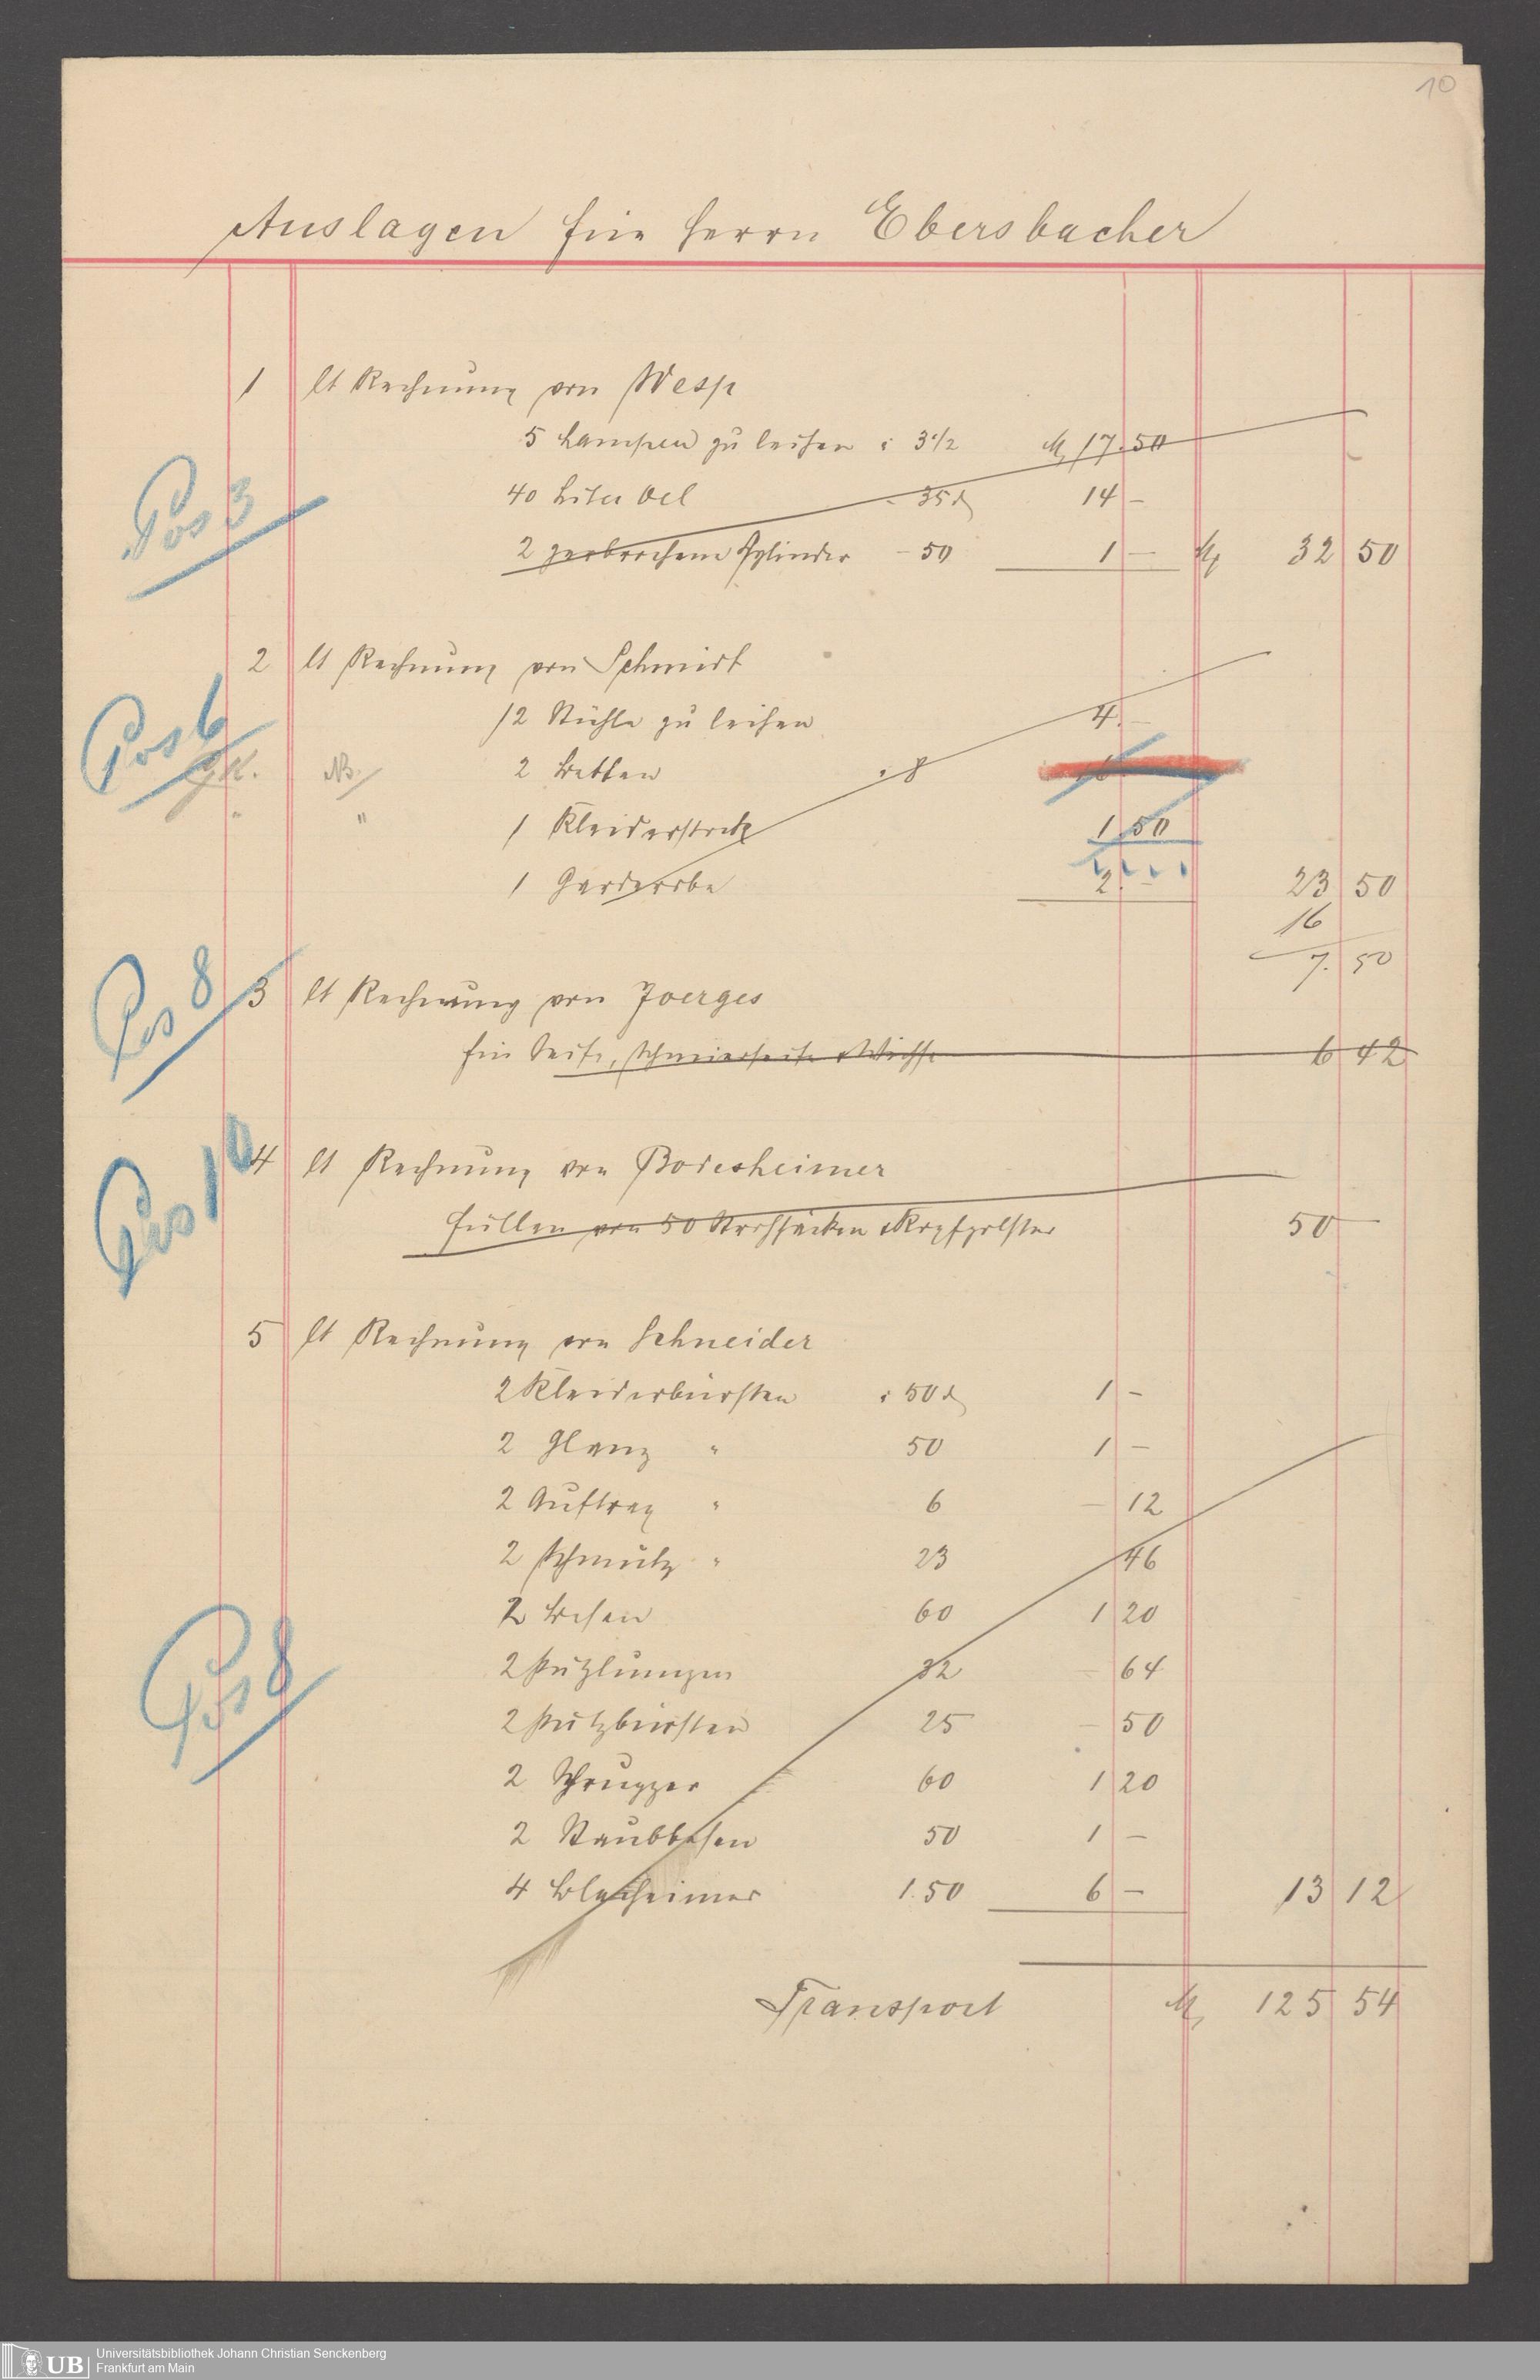 10
Auslagen für Herrn Ebersbacher
1 lt Rechnung von Wesp
5 Lampen zu leihen à 3 1/2 M 17.50
Pos 3
40 Liter Oel - 35 ₰ 14 -
2 zerbrochene Zylinder - 50 1 - M 32 50
2 lt Rechnung von Schmidt
Pos 6
12 Stühle zu leihen 4. -
NB. 2 Betten à 8 16
" " 1 Kleiderstock 1.50
1 Garderobe 2. - 23 50
16
7. 50
Pos 8
3 lt Rechnung von Joerges
für Seife, Schmierseife & Wichse 6 42
Pos 10
4 lt Rechnung von Bodesheimer
Füllen von 50 Strohsäcken & Kopfpolster 50 -
5 lt Rechnung von Schneider
2 Kleiderbürsten à 50 ₰ 1 -
2 Glanz " 50 1 -
2 Auftrag " 6 - 12
2 Schmutz " 23 46
2 Besen 60 1 20
Pos 8
2 Putzlumpen 32 - 64
2 Putzbürsten 25 - 50
2 Schrupper 60 1 20
2 Staubbesen 50 1 -
4 Blecheimer 1.50 6 - 13 12
Transport M 125 54
UB
Universitätsbibliothek Johann Christian Senckenberg
Frankfurt am Main